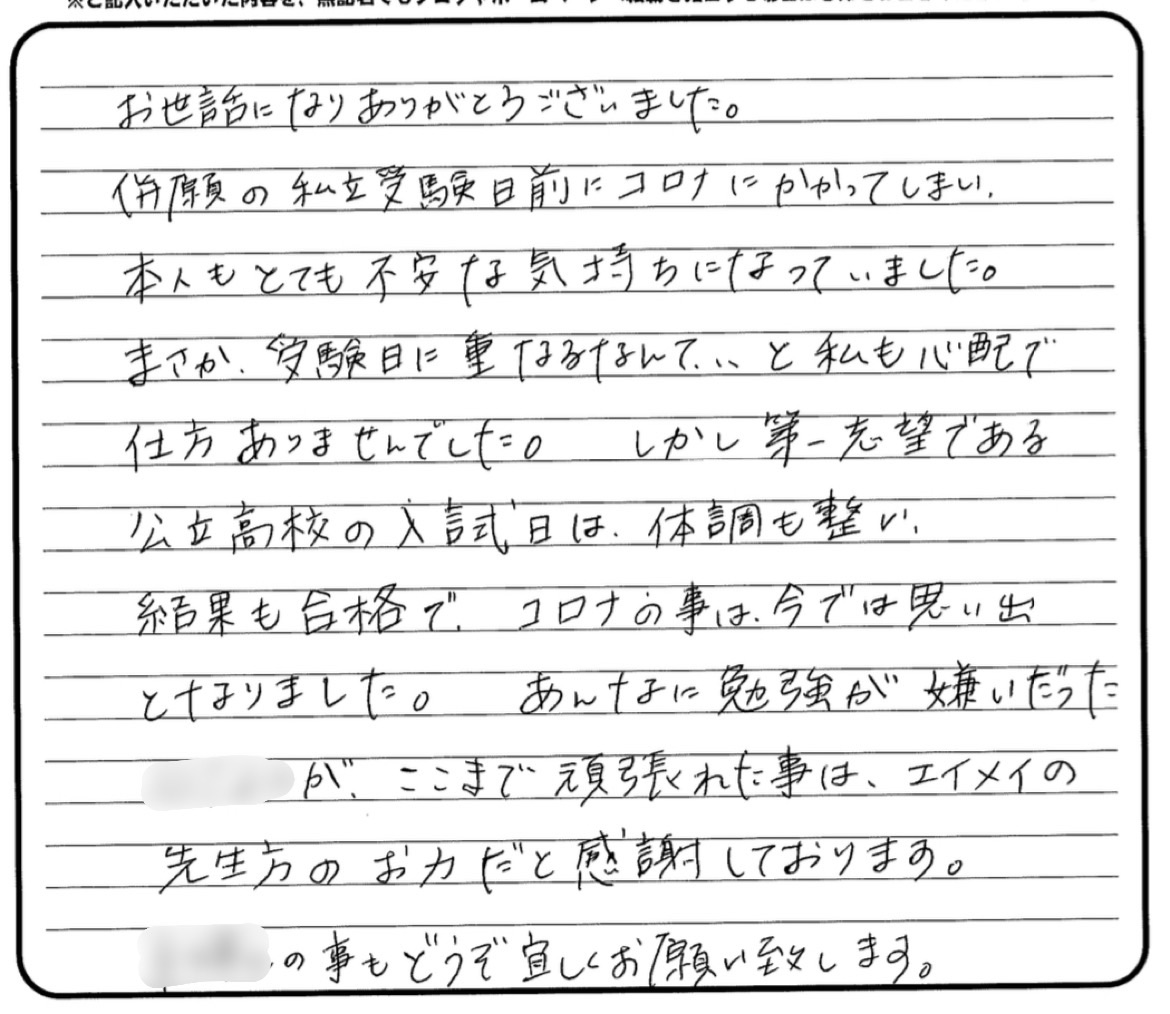 お世話になりありがとうございました。
併願の私立受験日前にコロナにかかってしまい、
本人もとても不安な気持ちになっていました。
まさか、受験日に重なるなんて、、、と私も心配で
仕方ありませんでした。 しかし第一志望である
公立高校の入試日は、体調も整い、
結果も合格で、 コロナの事は、今では思い出
となりました。 あんなに勉強が嫌いだった
が、ここまで頑張れた事は、エイメイの
先生方のお力だと感謝しております。
の事もどうぞ宜しくお願い致します。